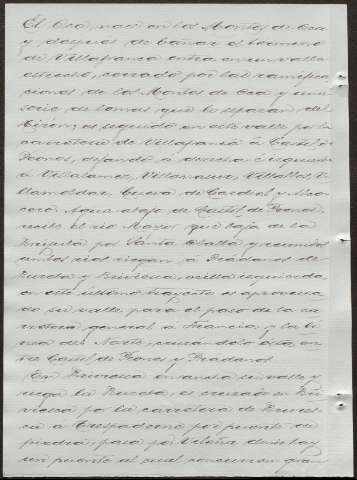 El Oca, nace en los Montes de Oca
y despues de bañar el termino
de Villafranca entra en un valle
estrecho, cerrado por las ramifica
ciones de los Montes de Oca y una
serie de lomas que le separan del
Tirón; es seguido en este valle por la
carretera de Villafranca á Castil de
Peones, dejando á derecha é izquierda
á Villalomez, Villanasur, Villalbos, Vi
llamoldar, Cueva de Cardiel y Alco
cero. Agua abajo de Castil de Peones,
recibe el rio Mayor que baja de la
Brújula por Santa Olalla y reunidos
ambos rios riegan á Pradanos de
Bureba y Briviesca, orilla izquierda
en este último trayecto es aprovecha
do su valle para el paso de la ca
rretera general á Francia, y la lí
nea del Norte, cruzándolo ésta, en
tre Castil de Peones y Pradanos.
En Briviesca ensancha su valle y
riega la Bureba, es cruzado en Bri
viesca por la carretera de Brivies
ca á Cerezo por puente de
piedra, pasa por Vileña donde hay
un puente al cual concurren gran